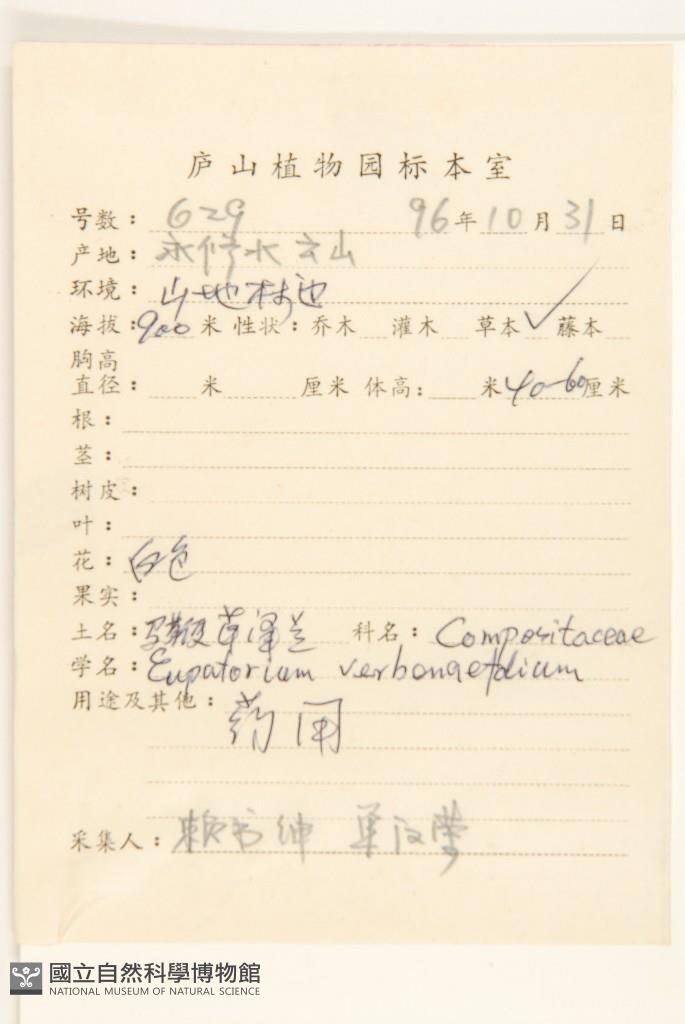 庐山植物园标本室
号数: 629 96年10月31日
产地: 永修水云山
环境: 山地林边
海拔: 900米 性状: 乔木 灌木 草本✓ 藤本
胸高
直径: 米 厘米 体高: 米40-60厘米
根:
茎:
树皮:
叶:
花: 白色
果实:
土名: 马鞭草泽兰 科名: Compositaceae
学名: Eupatorium verbonaefolium
用途及其他: 药用
采集人: 赖书绅 单汉荣
國立自然科學博物館
NATIONAL MUSEUM OF NATURAL SCIENCE